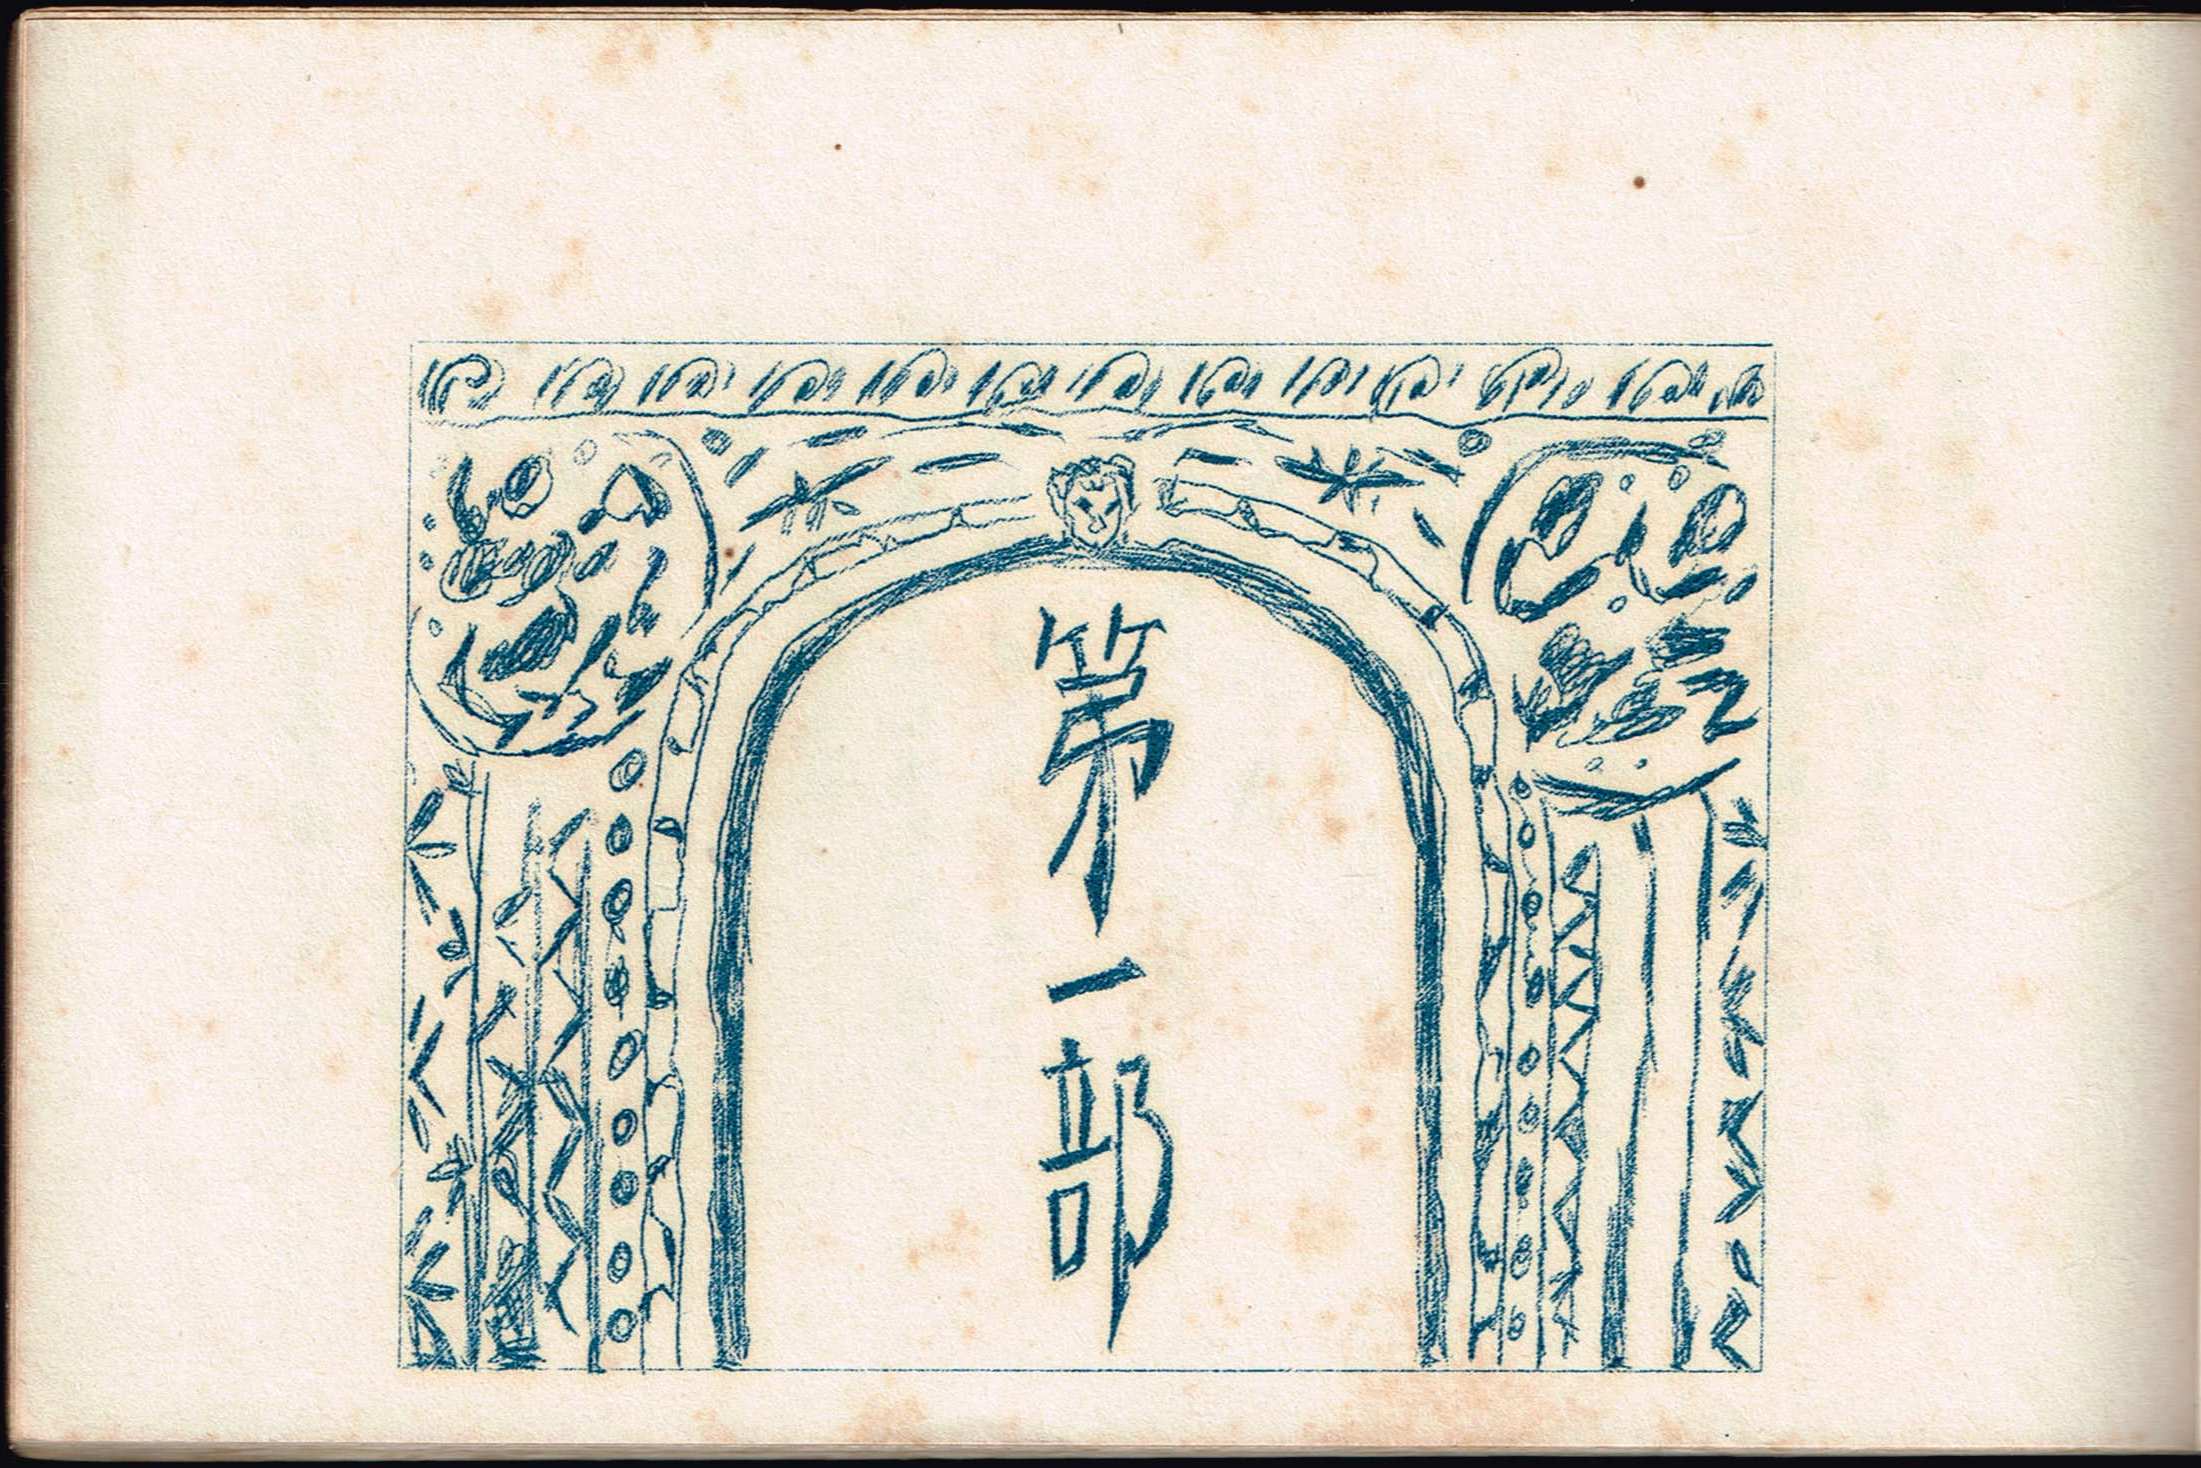 第一部